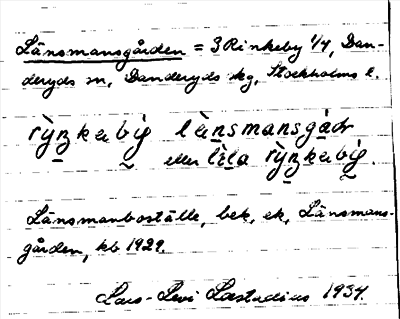 Länsmansgården = 3 Rinkeby 1/4, Dan-
deryds sn, Danderyds skg, Stockholms l.
rỳŋkabỳ lànsmansgàɖr
eller lìla rỳŋkabỳ.
Länsmanboställe, bek. ek, Länsmans-
gården, kb 1929.
Lars-Levi Læstadius 1934.